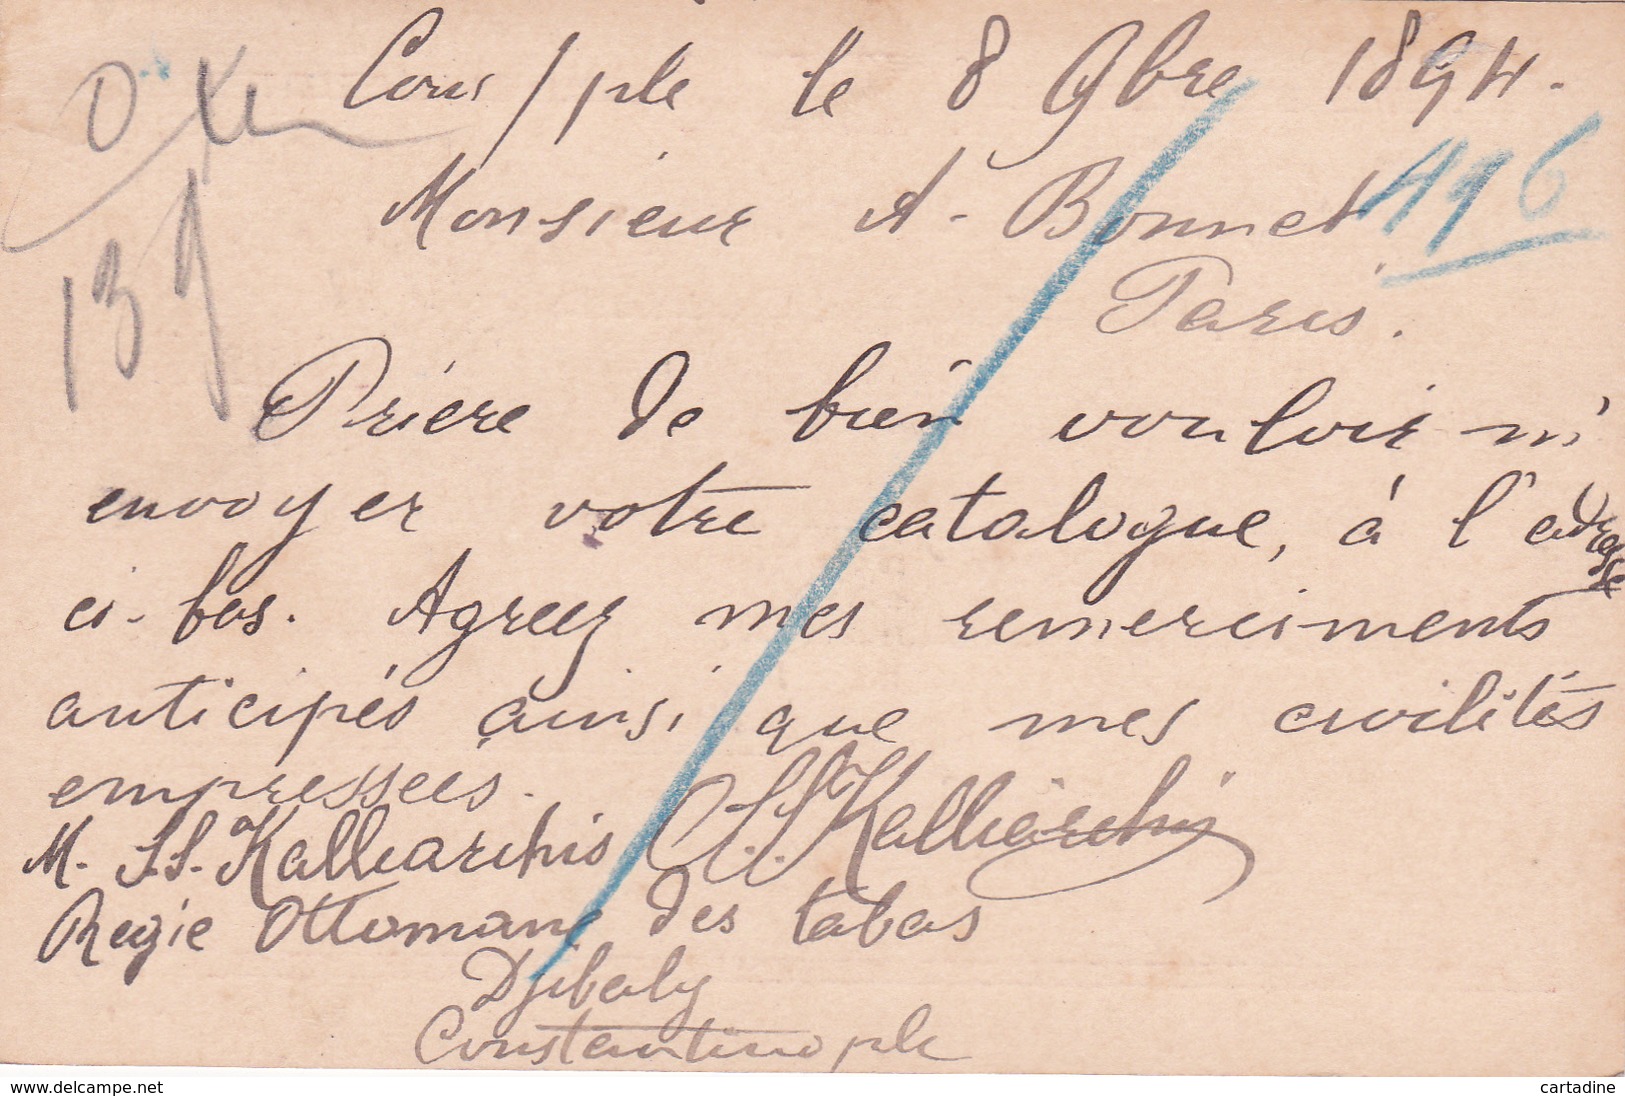 Cons/ple le 8 9bre 1894.
Monsieur A. Bonnet
496
Paris.
139
Prière de bien vouloir m'
envoyer votre catalogue, à l'adresse
ci-bas. Agréez mes remerciments
anticipés ainsi que mes civilités
empressées.
M. S.S. Kalliarchis S.S. Kalliarchis
Regie Ottomane des tabas
Djibaly
Constantinople
www.delcampe.net
cartadine